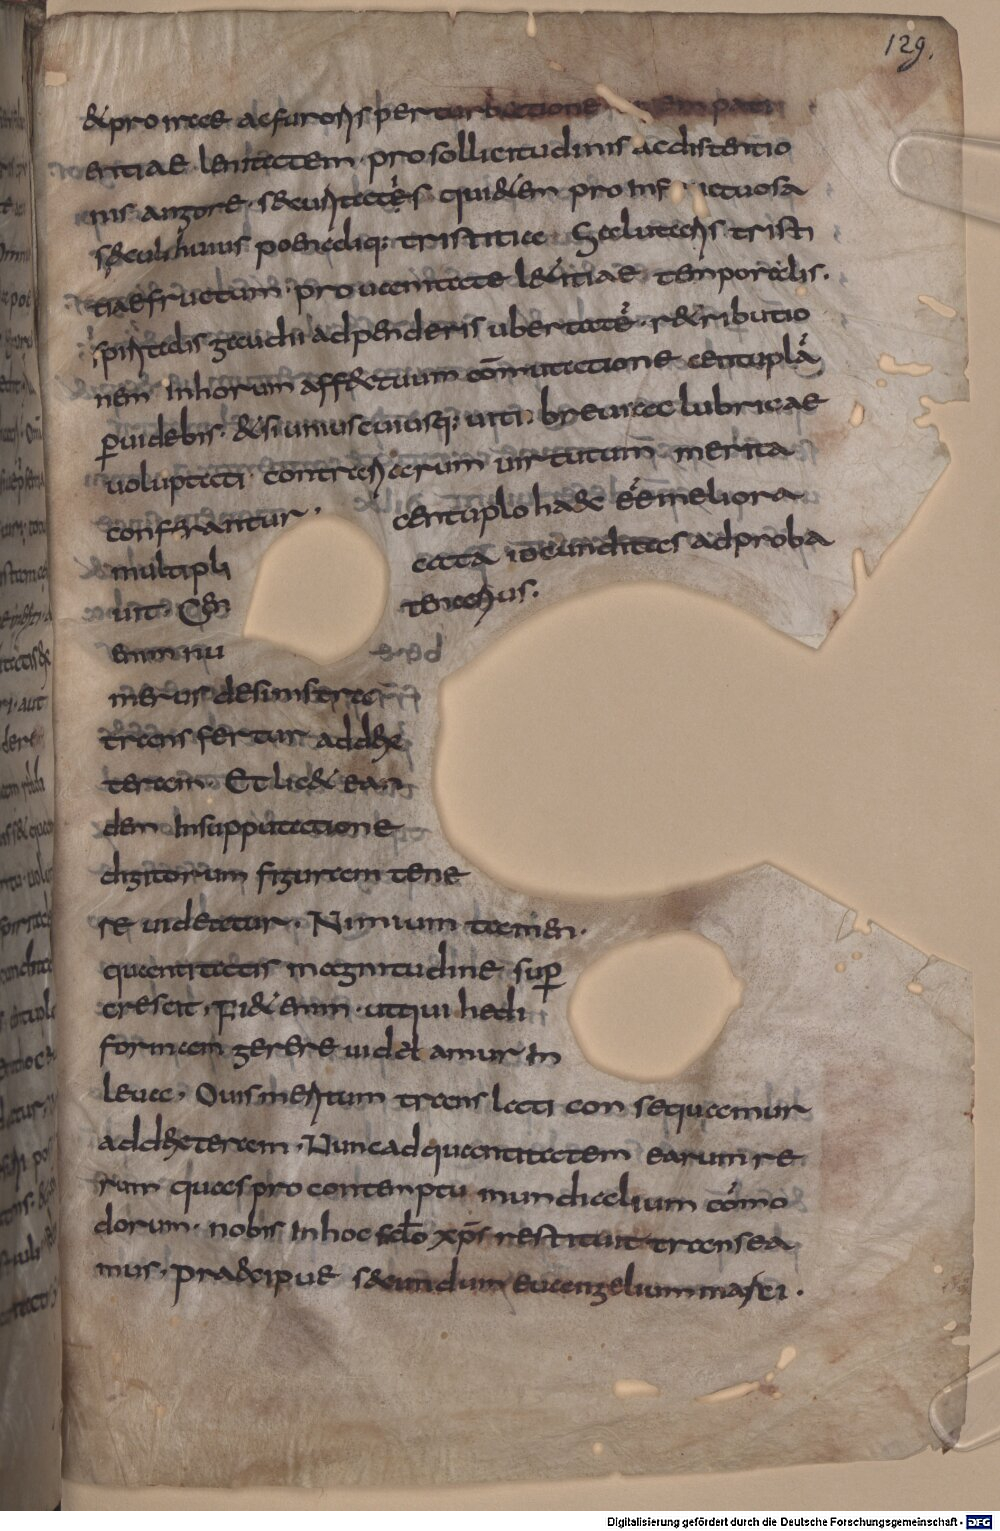 129.
& pro irae ac furoris perturbatione
entiae lenitatem. pro sollicitudinis ac distentio
nis angore. securitatis quidem pro inf uctuosa
seculi huius poenaliq; tristitia. Salutaris tristi
tiae fructum. pro uanitate laetitiae temporalis.
spiritalis gaudii adpenderis ubertatē. retributio
nem In horum affectuum cōmutatione centuplā
puidebis. & si unius cuiusq; uiti. breui ac lubricae
uoluptati contraria earum uirtutum merita
conferantur. centuplo haec eē meliora
multipli cata iocunditas adproba
uit. Cen tenarius.
enim nu
merus desinistra
trans fertur ad dex
teram. Et licet ean
dem In supputatione
digitorum figuram tene
re uideatur. Nimium tamen.
quantitatis magnitudine sup
crescit. Fidet enim. ut qui hedi
formam gerere uidebamur In
leua. Ouis meritum translati consequamur
ad dexteram. Nunc ad quantitatem earum re
rum quas pro contemptu mundialium cōmo
dorum. nobis In hoc sclo xps restituit transea
mus. praecipue secundum euangelium marci.
Digitalisierung gefördert durch die Deutsche Forschungsgemeinschaft - DFG